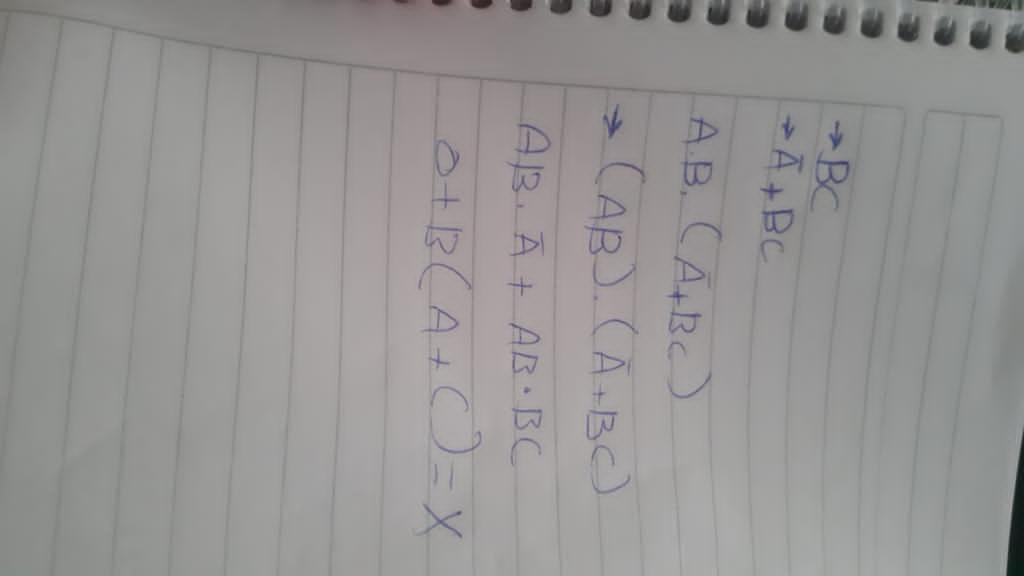 → BC
→ Ā + BC
A.B. (Ā+BC)
→ (AB). (Ā+BC)
AB. Ā + AB·BC
0+B(A+C)=X